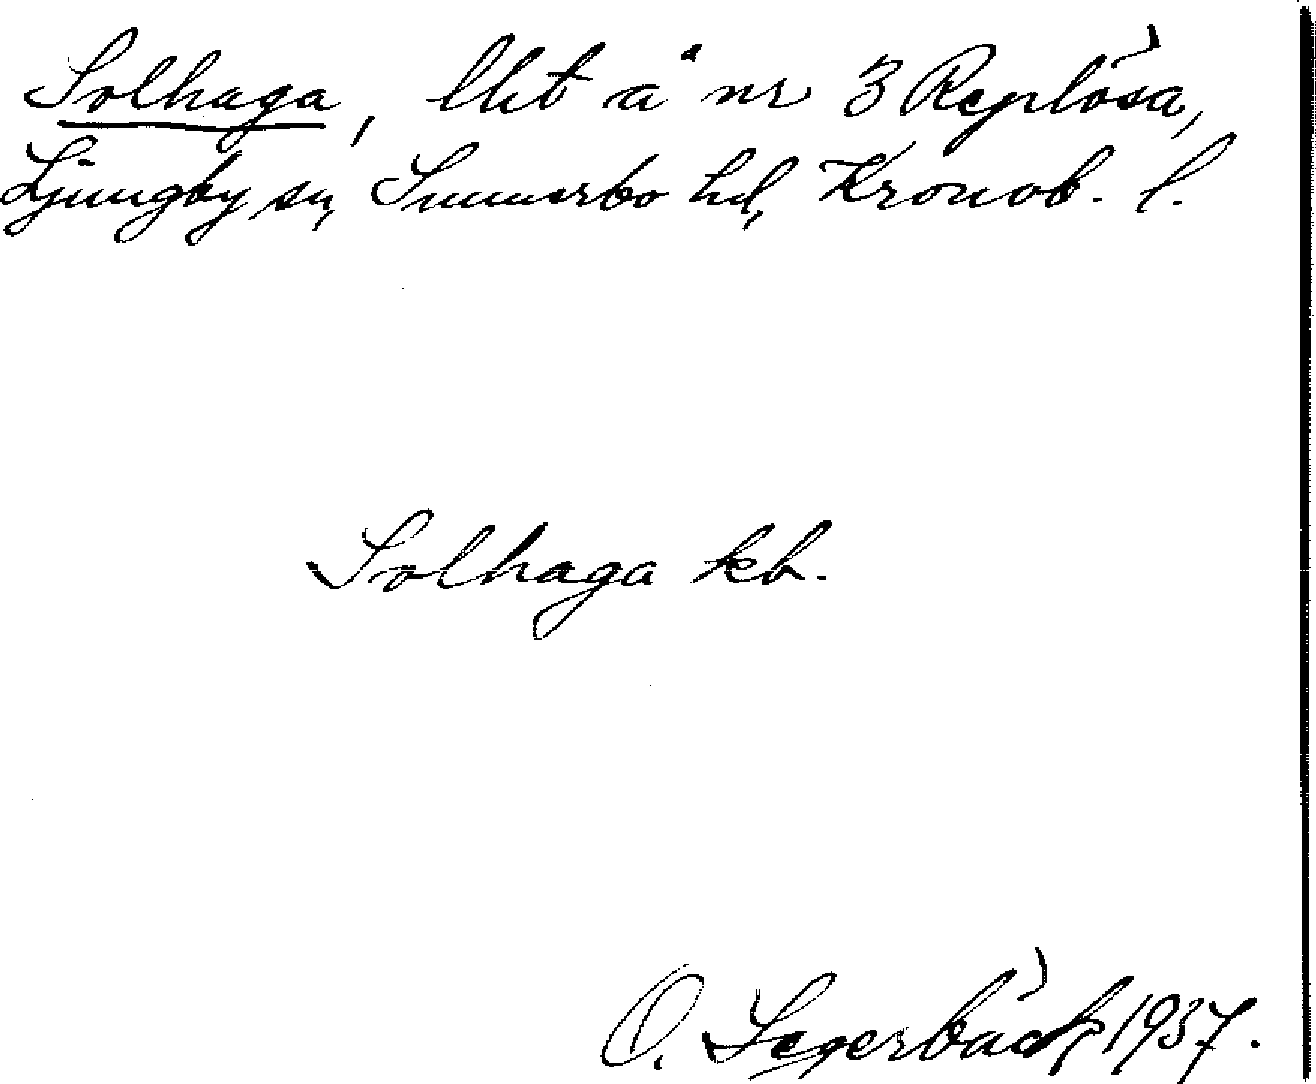 Solhaga, lht å nr 3 Replösa,
Ljungby sn, Sunnerbo hd, Kronob. l.
Solhaga kb.
O. Segerbäck, 1937.